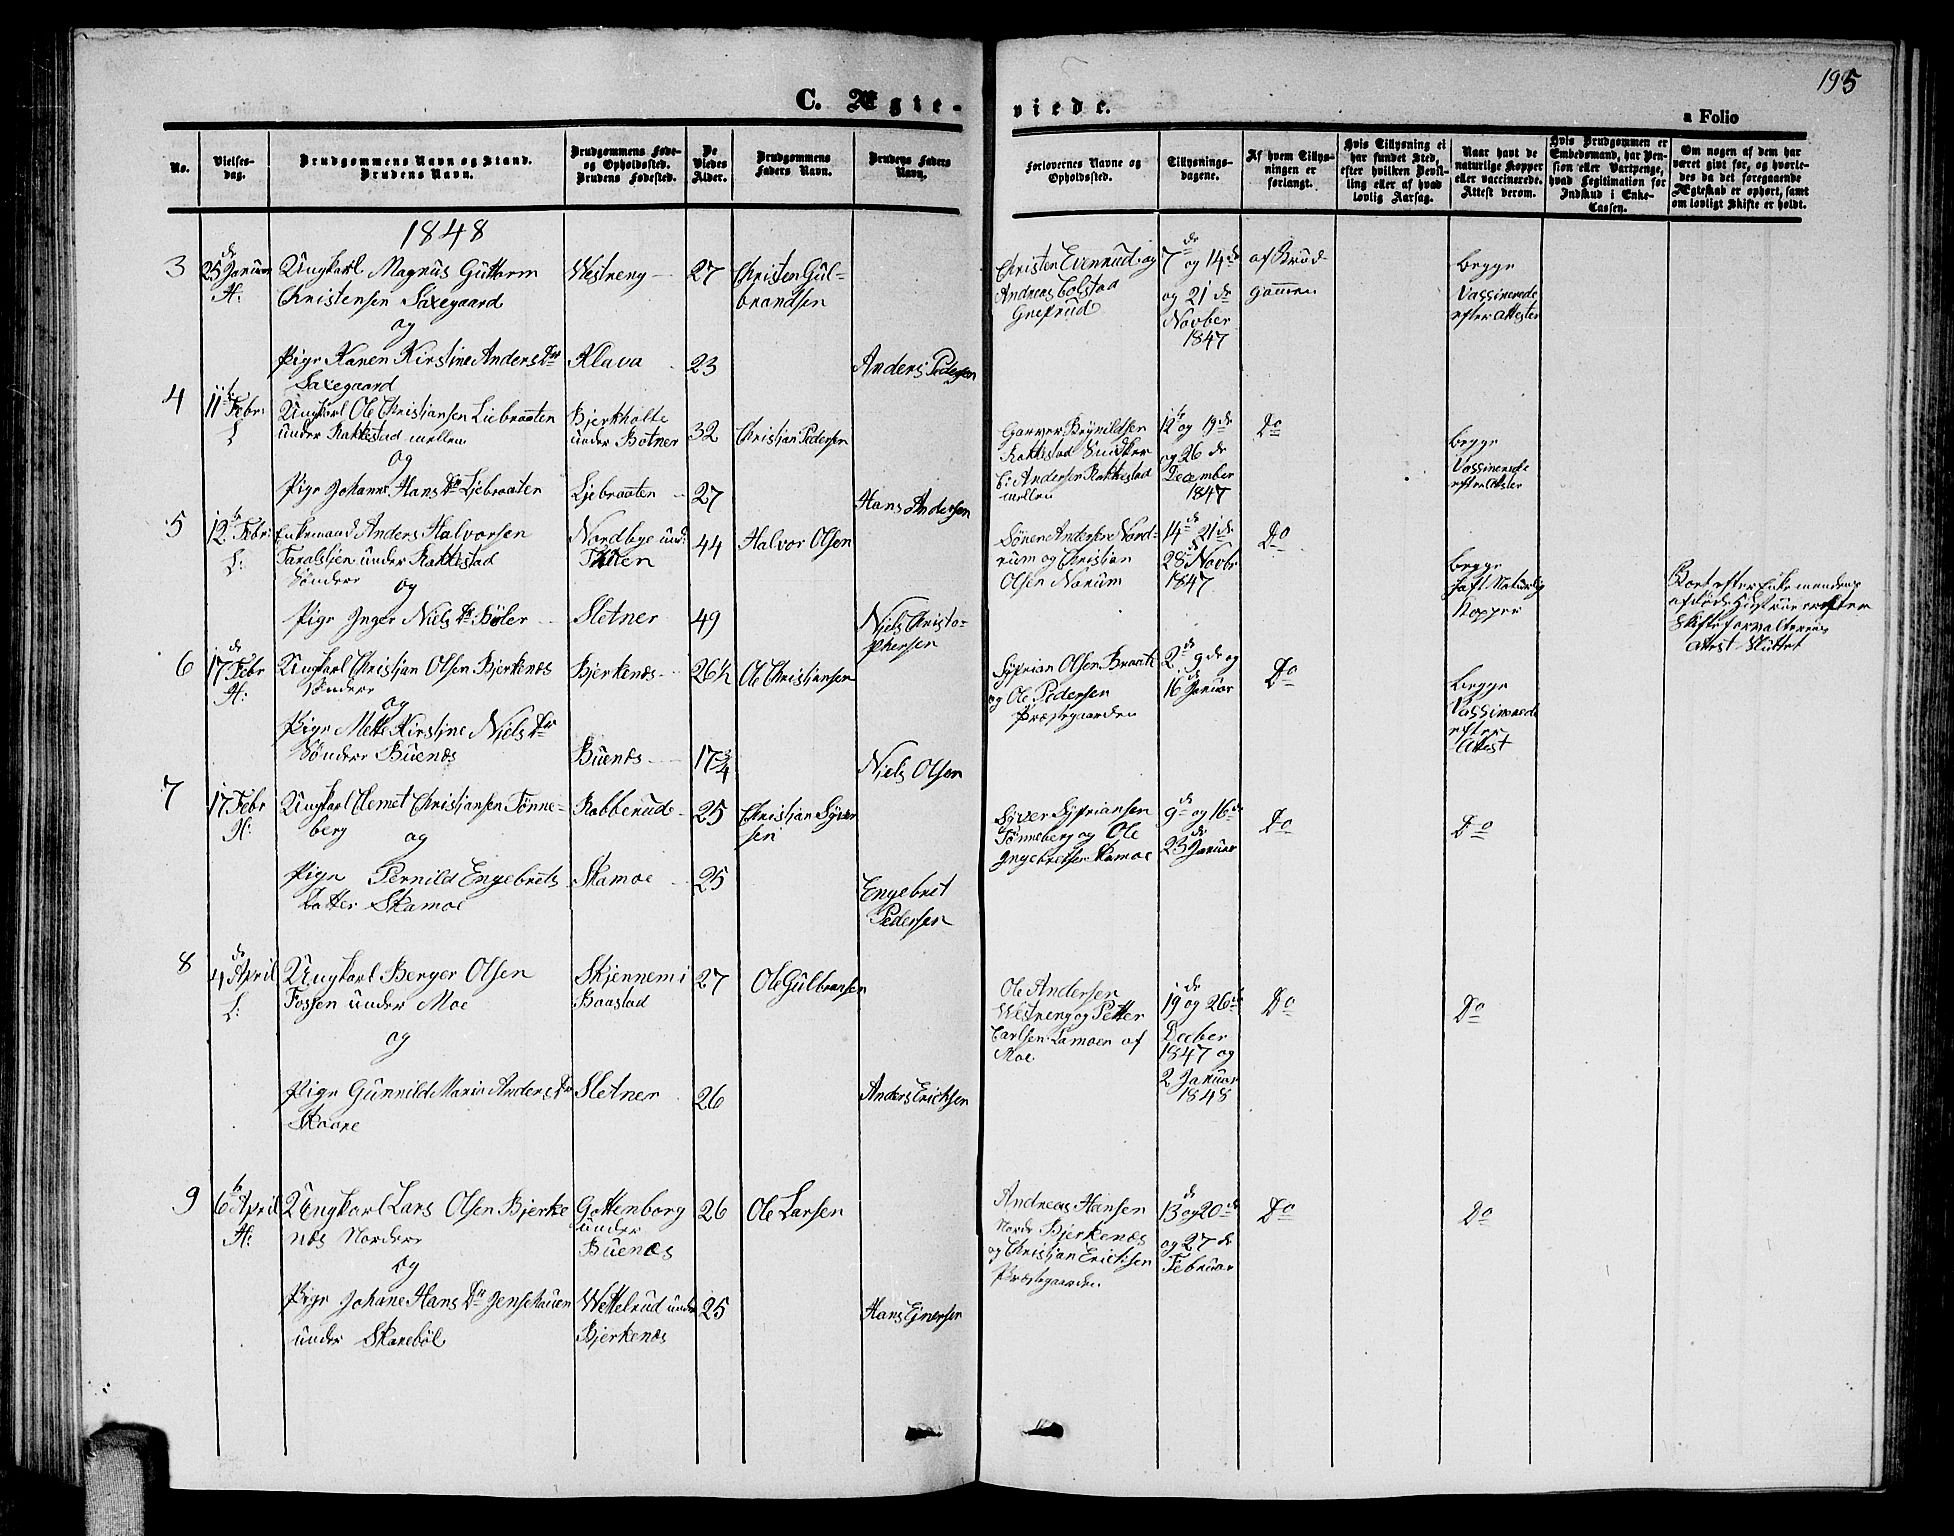 195
C. Ægte-
viede.
a Folio
No.
Vielses-
dag.
Brudgommens Navn og Stand.
Brudens Navn.
Brudgommens Føde-
og Opholdssted.
Brudens Fødested.
De
Viedes
Alder.
Brudgommens
Faders Navn.
Brudens Faders
Navn.
Forlovernes Navne og
Opholdssted.
Tillysnings-
dagene.
Af hvem Tillys-
ningen er
forlangt.
Hvis Tillysning ei
har fundet Sted,
efter hvilken Bevil-
ling eller af hvad
lovlig Aarsag.
Naar havt de
naturlige Kopper
eller vaccinerede.
Attest derom.
Hvis Brudgommen er
Embedsmand, har Pen-
sion eller Vartpenge,
hvad Legitimation for
Indskud i Enke-
Cassen.
Om nogen af dem har
været gift før, og hvorle-
des da det foregaaende
Ægteskab er ophørt, samt
om lovligt Skifte er holdt.
1848
3
25 de Januar
H:
Ungkarl Magnus Guttorm
Christensen Saxegaard
og
Pige Karen Kirstine Anders Dtr
Saxegaard
Westreng
Klava
27
23
Christen Gul-
brandsen
Anders Pedersen
Christen Evenrud og
Andreas Colstad
Grefsrud
7 de og 14 de
og 21 de
Novber
1847
af Brud-
gommen
begge
Vassinerede
efter Attester
4
11 te Febr:
L
Ungkarl Ole Christiansen Liebraaten
under Rakkestad mellem
og
Pige Johanne Hans Dtr Ljebraaten
Bjerkholte
under Botner
Ljebraaten
32
27
Christian Pedersen
Hans Andersen
Rakkestad Snidker
Andersen Rakkestad
mellem
12 te og 19 de
og 26 de
December
1847
Do
begge
Vassinerede
efter Attester
5
12 te Febr:
L:
Enkemand Anders Halvorsen
under Rakkestad
Søndere
og
Pige Inger Niels Dtr Bøler
Nordbye und:
Sletner
44
49
Halvor Olsen
Niels Christo-
phersen
Sören Andersen Nord-
rum og Christian
Olsen Narum
14 de 21 de
28 de Novbr
1847
Do
begge
haft Naturlig
Kopper
Boet efter Enkemandens
afdøde Hustrue er efter
Skifteforvalterens
Attest Sluttet
6
17 de Febr
H:
Ungkarl Christian Olsen Bjerkenæs
Søndere
og
Pige Mette Kirstine Niels Dtr
Søndere Buenæs
Bjerkenæs
Buenæs
26½
17¾
Ole Christiansen
Niels Olsen
Syprian Olsen Braate
og Ole Pedersen
Præstegaarden
2 9 de og
16 de Januar
Do
begge
Vassinerede
efter
Attest
7
17 Febr
H:
Ungkarl Clemet Christiansen Tønne-
berg
og
Pige Pernild Engebrets
Datter Skamoe
Rabberud
Skamoe
25
25
Christian Syver
sen
Engebret
Pedersen
Syver Sypriansen
Tønneberg og Ole
Ingebretsen Skamoe
9 de og 16 de
23 de Januar
Do
Do
8
4 de April
L:
Ungkarl Berger Olsen
Fossen under Moe
og
Pige Gunnild Marie Anders Dtr
Skaare
Skjennem i
Baastad
Sletner
27
26
Ole Gulbransen
Anders Erichsen
Ole Andersen
Westreng og Petter
Carlsen Lamoen af
Moe
19 de og 26 de
Decber
1847 og
2 Januar
1848
Do
Do
9
6 te April
H:
Ungkarl Lars Olsen Bjerke
næs Nordere
og
Pige Johane Hans Dtr Jensehauen
under Skarebøl
Gottenborg
under
Buenæs
Wettelrud under
Bjerkenæs
26
25
Ole Larsen
Hans Ejnersen
Andreas Hansen
Nordr Bjerkenæs
og Christian Erichsen
Præstegaarden
13 de og 20 de
og 27 de
Februar
Do
Do